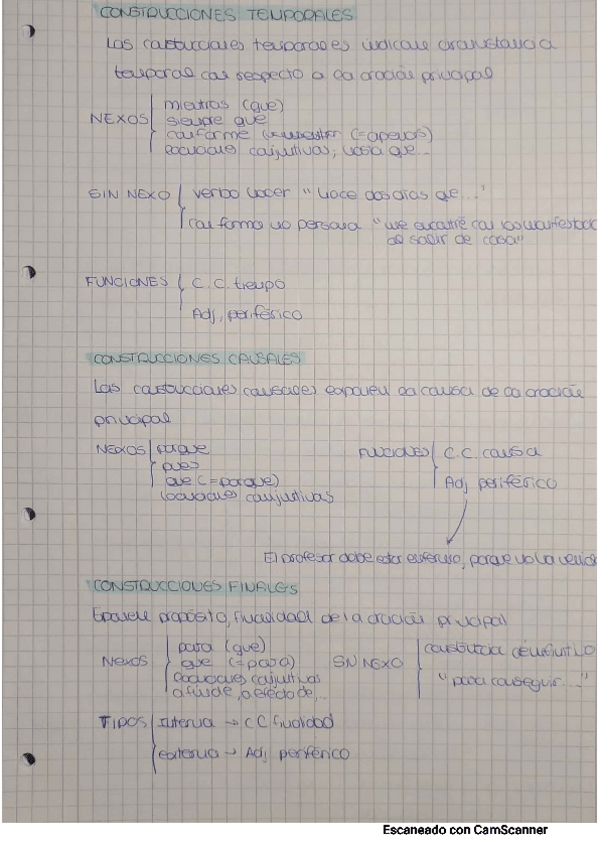 CONSTRUCCIONES TEMPORALES
Las construcciones temporales indican circunstancia
temporal con respecto a la oración principal
NEXOS
mientras (que)
siempre que
conforme (=apenas)
locuciones conjuntivas, una que...
SIN NEXO
verbo hacer "hace dos días que..."
con forma no personal "me encontré con los manifestado
al salir de casa"
FUNCIONES
C.C. tiempo
Adj. periférico
CONSTRUCCIONES CAUSALES
Las construcciones causales exponen la causa de la oración
principal
NEXOS
porque
pues
que (=porque)
locuciones conjuntivas
FUNCIONES
C.C. causa
Adj periférico
El profesor debe estar enfermo, porque no ha venido
CONSTRUCCIONES FINALES
Exponen propósito, finalidad de la oración principal
Nexos
para (que)
que (=para)
locuciones conjuntivas
a fin de, a efecto de,...
SIN NEXO
"para conseguir..."
TIPOS
Interna → CC finalidad
externa → Adj periférico
Escaneado con CamScanner